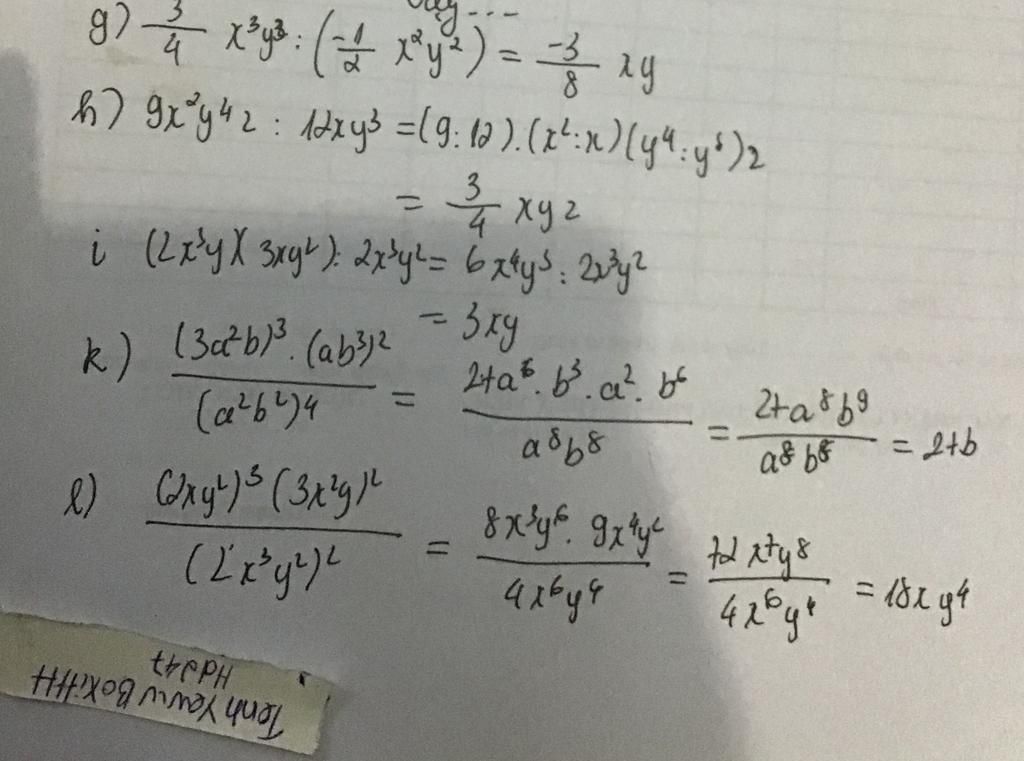 g) 3/4 x³y³ : (-1/2 x²y²) = -3/8 xy
h) 9x²y⁴z : 12xy³ = (9:12).(x²:x)(y⁴:y³)z
= 3/4 xyz
i (2x³y)(3xy²): 2x³y² = 6x⁴y³ : 2x³y²
= 3xy
k) (3a²b)³.(ab³)² / (a²b²)4 = 27a⁶.b³.a².b⁶ / a⁸b⁸ = 27a⁸b⁹ / a⁸b⁸ = 27b
l) (2xy²)³(3x²y)² / (2x³y²)² = 8x³y⁶.9x⁴y² / 4x⁶y⁴ = 72x⁷y⁸ / 4x⁶y⁴ = 18xy⁴
Hdg47